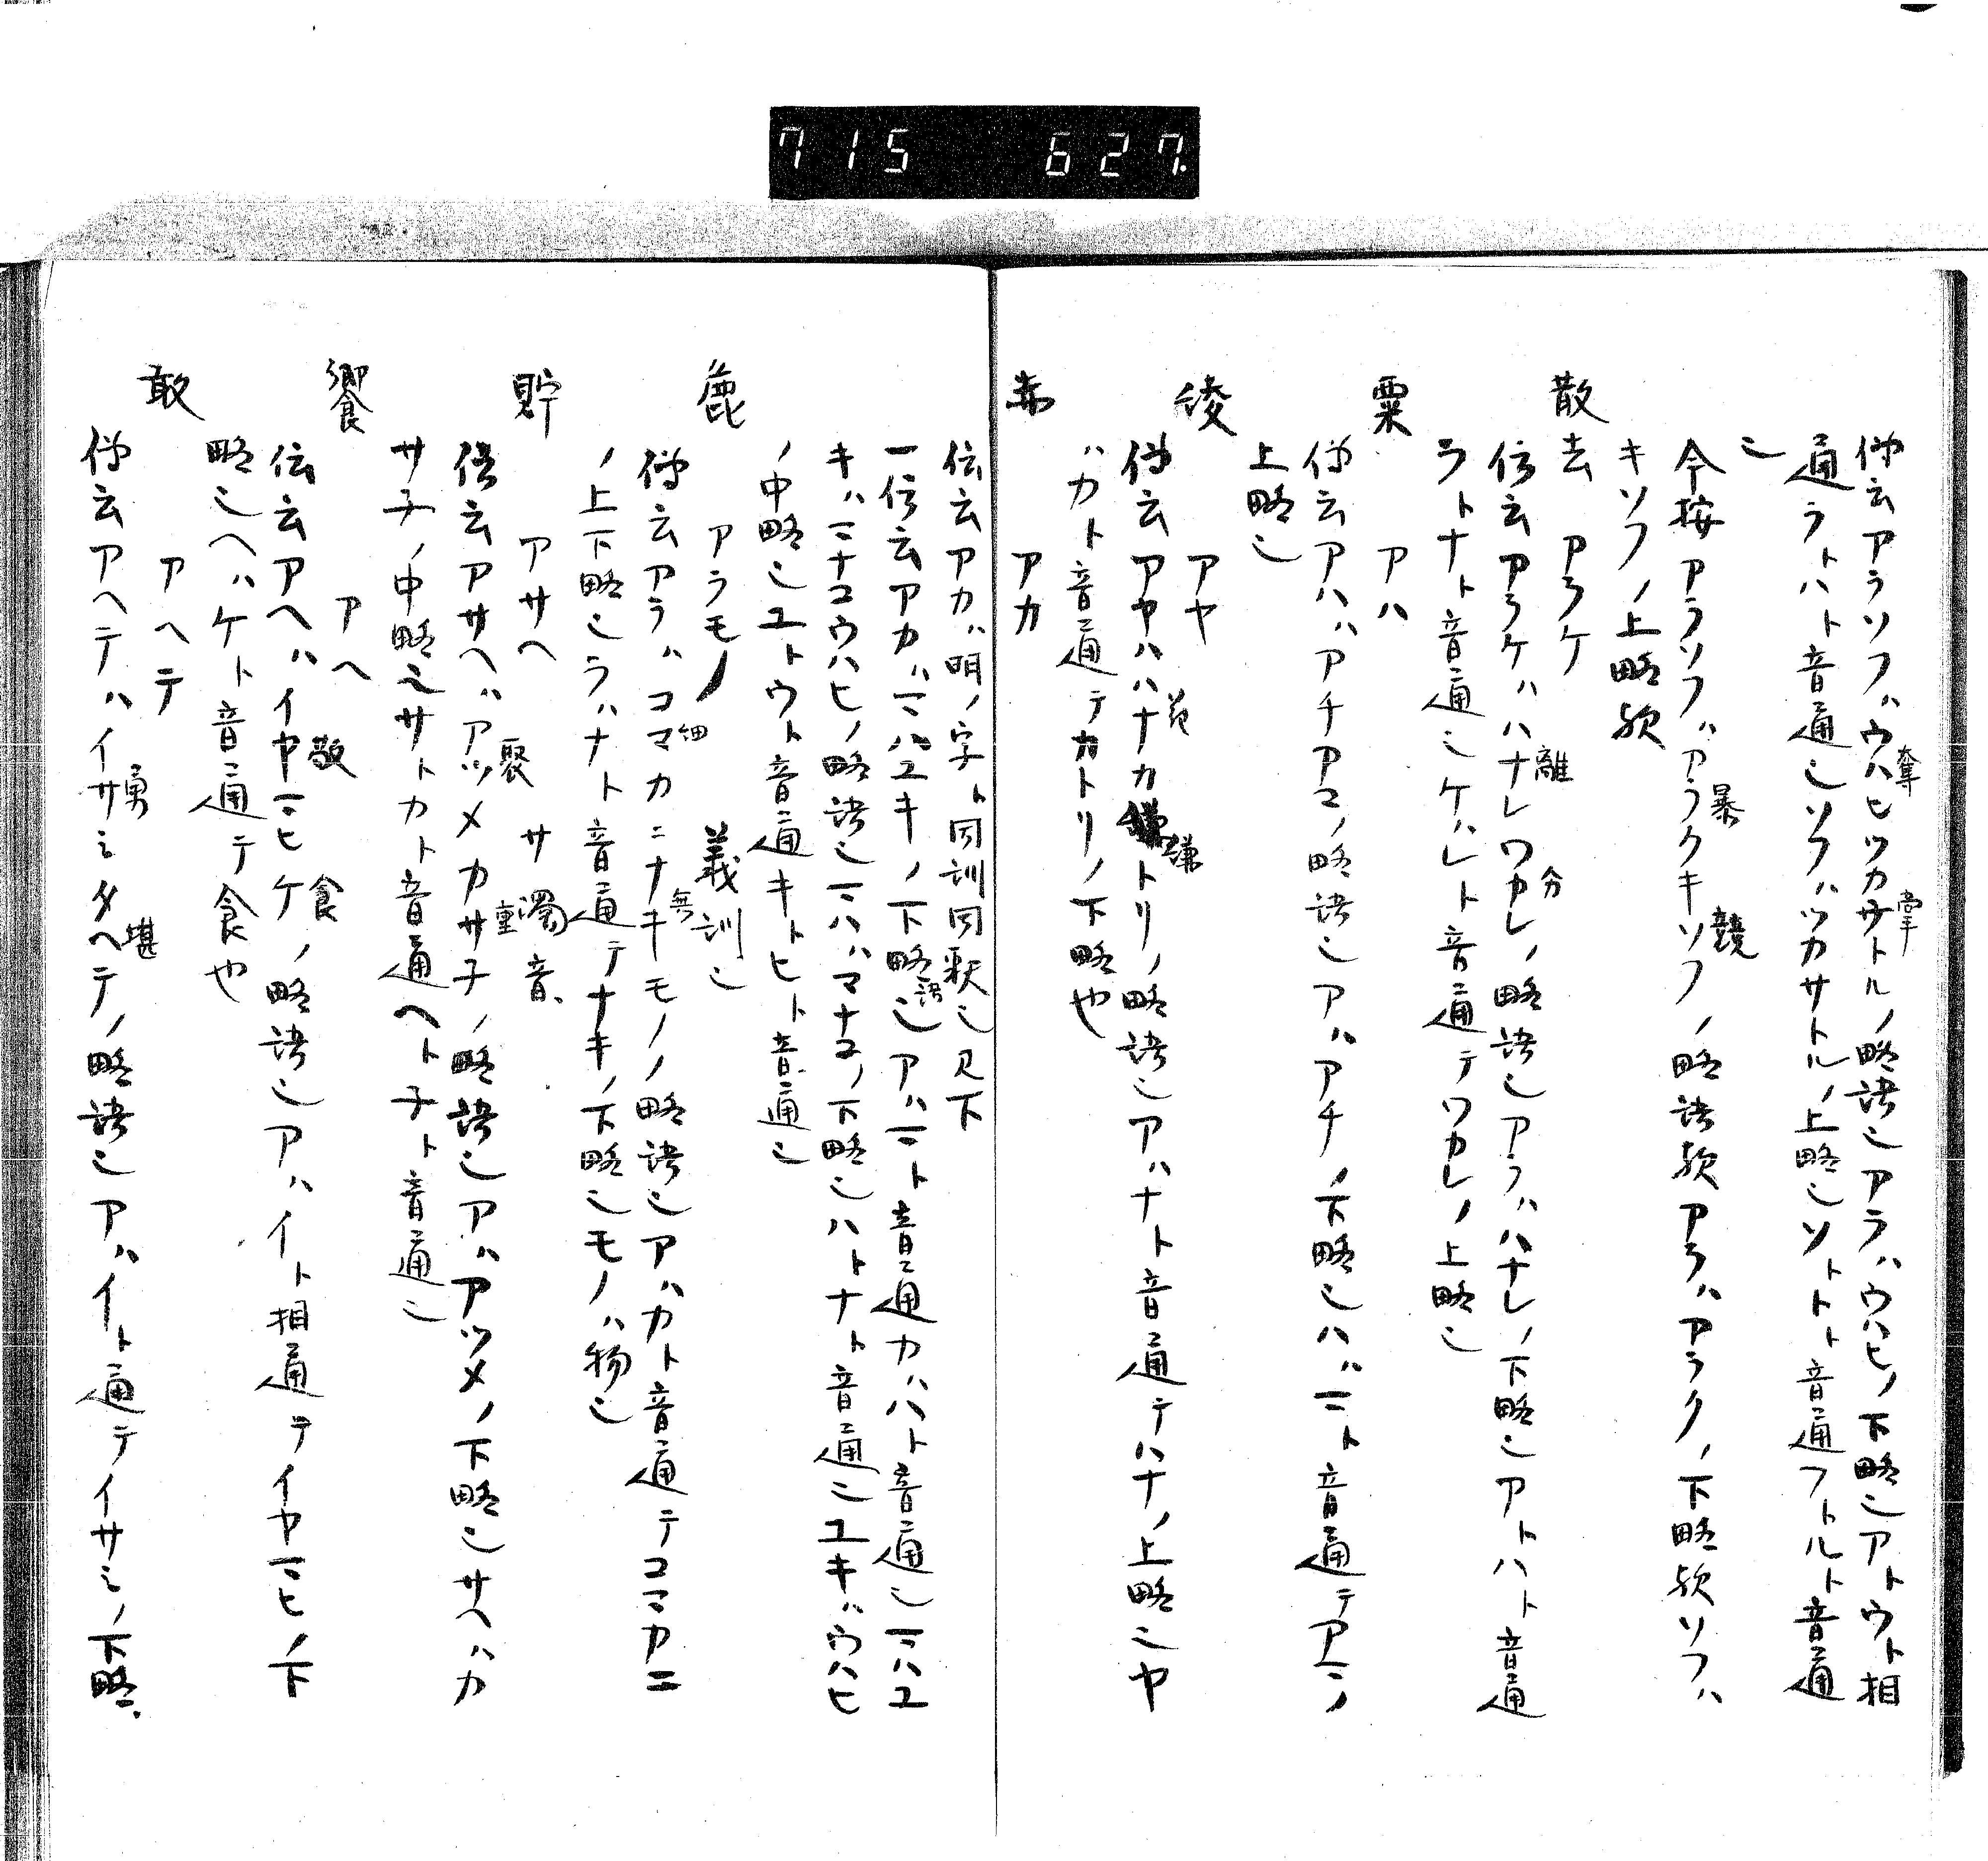 715 627
伝云アラソフハウハヒツカサトルノ略語也アラハウハヒノ下略也アトウト相
奪 掌
通ラトハト音通也ソフハツカサトルノ上略也ソトトト音通フトルト音通
也
今按アラソフハアラクキソフノ略語歟アラハアラクノ下略歟ソフハ
暴 競
キソフノ上略歟
散去 アラケ
伝云アラケハハナレワカレノ略語也アラハハナレノ下略也アトハト音通
離 分
ラトナト音通也ケハレト音通テワカレノ上略也
粟 アハ
伝云アハハアチアマノ略語也アハアチノ下略也ハハマト音通テアマノ
上略也
綾 アヤ
伝云アヤハハナカトリノ略語也アハナト音通テハナノ上略也ヤ
花 鎌
ハカト音通テカトリノ下略也
赤 アカ
伝云アカハ明ノ字ト同訓同釈也見下
一伝云アカハマハユキノ下略語也アハマト音通カハハト音通也マハユ
キハマナコウハヒノ略語也マハハマナコノ下略也ハトナト音通也ユキハウハヒ
ノ中略也ユトウト音通キトヒト音通也
麁 アラモノ 義訓也
伝云アラハコマカニナキモノノ略語也アハカト音通テコマカニ
細 無
ノ上下略也ラハナト音通テナキノ下略也モノハ物也
貯 アサヘ サ濁音
伝云アサヘハアツメカサ子ノ略語也アハアツメノ下略也サヘハカ
聚 重
サ子ノ中略也サトカト音通ヘト子ト音通也
饗 アヘ
伝云アヘハイヤマヒケノ略語也アハイト相通テイヤマヒノ下
敬 食
略也ヘハケト音通テ食也
敢 アヘテ
伝云アヘテハイサミタヘテノ略語也アハイト通テイサミノ下略
勇 堪